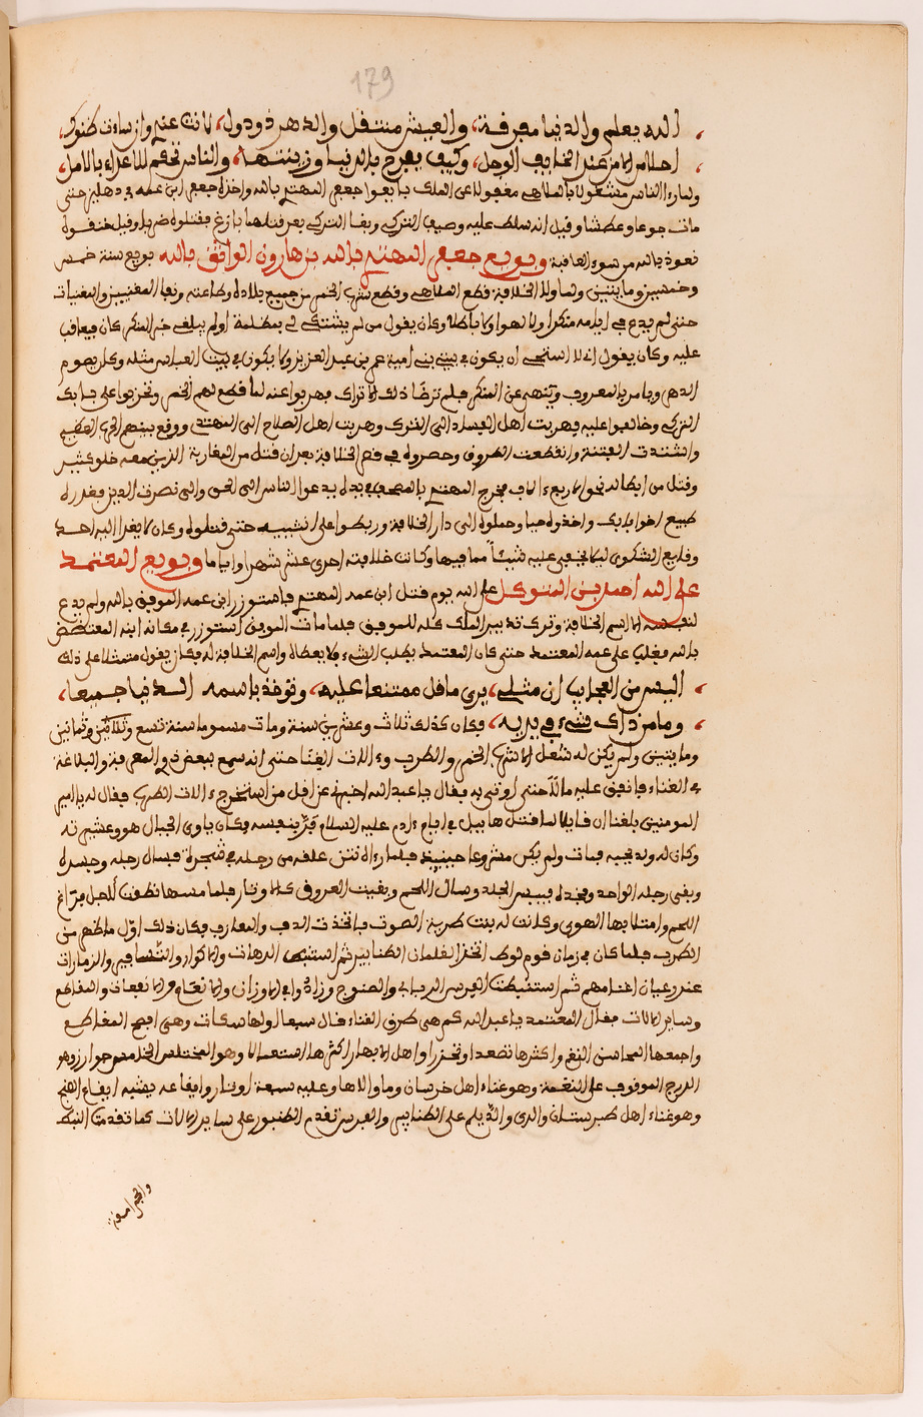 179
الله يعلم والدنيا مفرقة، والعيش منتقل والدهر ذو دول، لانت عندي وان ساءت ظنونك،
احلا من الامن عند الخايف الوجل، وكيف يفرح بالدنيا وزينتها، والناس تحكم للاعداء بالامل،
ولما رءا الناس مشغولا بالملاهي مغفولا عن الملك بايعوا جعفر المهتدي بالله واخذه جعفر ابن عمه في دهليز حتى
مات جوعا وعطشا وقيل انه سلط عليه وصيف التركي وبغا التركي بعر فتلهما بازغ فقتلوه ضربا وقيل خنقوه
نعوذ بالله من سوء العاقبة وبويع جعفر المهتدي بالله بن هارون الواثق بالله بويع سنة خمس
وخمسين ومايتين ولما ولي الخلافة قطع الملاهي وقطع شرب الخمر من جميع بلاده وطاعته ونفا المغنيين والمغنيات
حتى لم يدع في ايامه منكرا ولا لهوا ولا باطلا وكان يقول من لم يشتكي لي بمظلمة او لم يبلغني خبر المنكر كان فيعاقب
عليه وكان يقول اني لا استحي ان يكون في بيتي بني امية عمر بن عبد العزيز ولا يكون في بيت العباس مثله وكان يصوم
الدهر ويامر بالمعروف وينهى عن المنكر فلم ترضا ذلك الاتراك فهربوا عنه لما قطع لهم الخمر وتحزبوا على بابك
التركي وخالفوا عليه فهربت اهل الفساد الى الترك وهربت اهل الصلاح الى المهتدي ووقع بينهم الحرب العظيم
واشتدت الفتنة وانقطعت الطروق وحصروه في قصر الخلافة بعد ان قتل من المغاربة الذين معه خلق كثير
وقتل من ابطاله نحو الاربعة الاف فخرج المهتدي بالمصحف في يده يدعو الناس الى الحق والى نصرة الدين فغدره
طبيع اخوا بابك واخذوه حيا وحملوه الى دار الخلافة وربطوا على انثييه حتى قتلوه وكان لا يقرا اليه احد
وقايع الشكوى ليلا يخفى عليه شيئا مما فيها وكانت خلافته احدى عشر شهرا واياما وبويع المعتمد
على الله احمد بن المتوكل على الله يوم قتل ابن عمه المهتدي فاستوزر ابن عمه الموفق بالله ولم يدع
لنفسه الا اسم الخلافة وترك تدبير الملك كله للموفق فلما مات الموفق استوزر في مكانه ابنه المعتضض
بالله فغلب على عمه المعتمد حتى كان المعتمد يطلب الشيء فلا يعطاه واسم الخلافة له فكان يقول متمثلا على ذلك
اليس من العجايب ان مثلي، يرى ما قل ممتنعا عليه، وتوخذ باسمه الدنيا جميعا،
وما من ذاك شيء في يديه، فكان كذلك ثلاث وعشرين سنة ومات مسموما سنة تسع وثلاثين وثمانين
ومايتين ولم يكن له شغل الا شرب الخمر والطرب وءالات الغنا حتى انه سمع ببعض ذو المعرفة والبلاغة
في الغناء فانفق عليه مالا حتى اوتي به فقال يا عبد الله اخبرني عن اول من استخرج ءالات الطرب فقال له يا امير
المومنين بلغنا ان قابلا لما قتل هابيل في ايام ءادم عليه السلام فر بنفسه فكان ياوي الجبال هو وعشيرته
وكان له ولد يحبه فمات ولم يكن مشروعا حينيذ فلما رءاه انتن علقه من رجله في شجرة فسال رجله وجسده
وبقى رجله الواحد وفخذه فيبس الجلد وسال اللحم وبقيت العروق كالاوتار فلما مسها نطقت لاجل فراغ
اللحم وامتلا بها الهوى وكانت له بنت طريبة الصوت فاتخذت الدف والمعازف فكان ذلك اول ما ظهر من
الطرب فلما كان في زمان قوم لوط اتخذ الغلمان الطنابير ثم استنبط الرهات والاكوار والشفافير والزمارات
عند رعيان اغنامهم ثم استنبطت الفرس الرباب والصنوج وزادوا في الاوزان والانغام والايقاعات والمقاطع
وساير الالات فقال المعتمد يا عبد الله كم هي طرق الغناء قال سبعا اولها سكات وهي افصح المقاطع
واجمعها لمحاسن النغم واكثرها تصعدا وتحذرا واهل الابهار اكثرها استعمالا وهو المختلس الخامس جوارزوهر
الدرج الموقوف على النغمة وهو غناء اهل خرسان وما والاها وعليه سبعة اوتار وايقاعه يشبه ايقاع الفنج
وهو غناء اهل طبرستان والري والديلم على الطنابير والفرس تقدم الطنبور على ساير الالات كما تقدمت النبط
والجرامقة